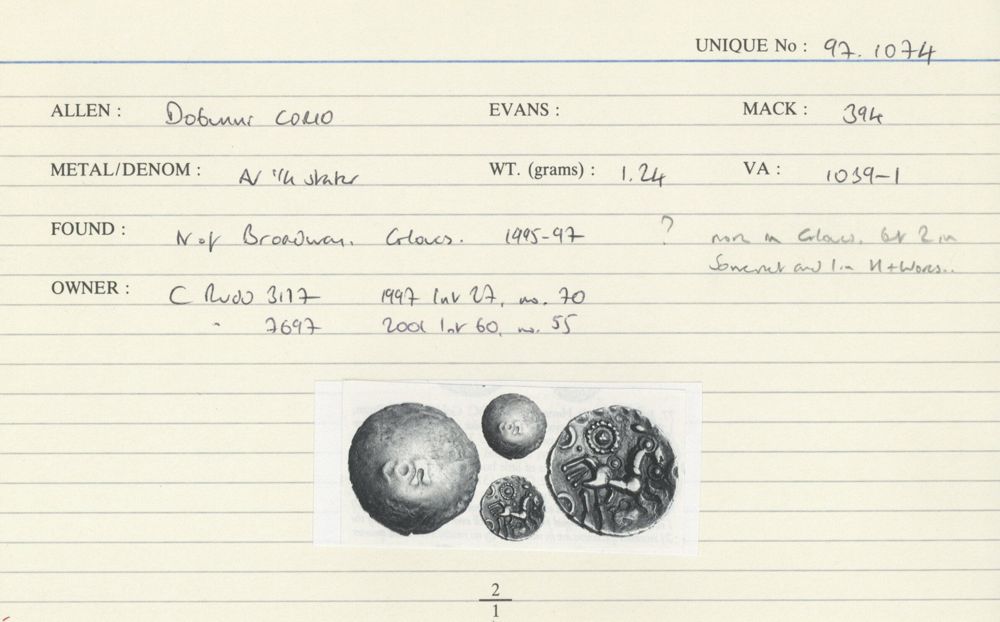 UNIQUE No : 97.1074
ALLEN : Dobunni CORIO EVANS : MACK : 394
METAL/DENOM : AV 1/4 stater WT. (grams) : 1.24 VA : 1039-1
FOUND : N of Broadway, Gloucs. 1995-97 ? more in Gloucs. but 2 in
Somerset and 1 in H+Worcs..
OWNER : C Rudd 3117 1997 list 27, no. 70
" 7697 2001 list 60, no. 55
2
1